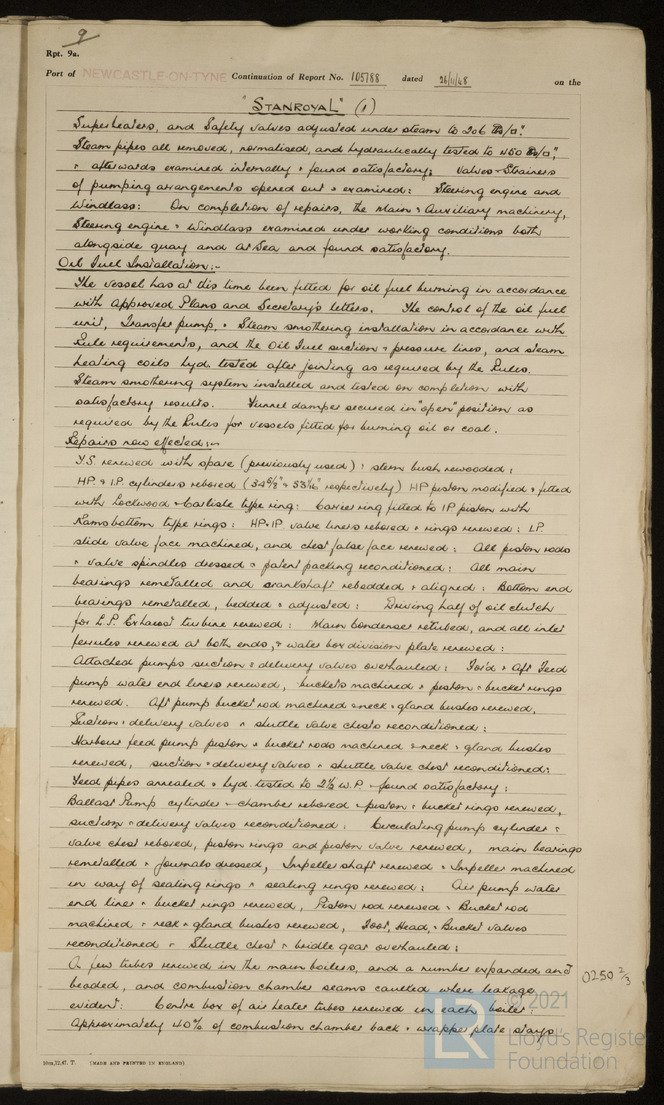 9
Rpt. 9a.
Port of NEWCASTLE-ON-TYNE Continuation of Report No. 105788 dated 26/11/48 on the
"STANROYAL" (1)
Superheaters, and Safety valves adjusted under steam to 206 lbs/□".
Steam pipes all removed, normalised, and hydraulically tested to 450 lbs/□",
& afterwards examined internally & found satisfactory; Valves & Strainers
of pumping arrangements opened out & examined: Steering engine and
Windlass: On completion of repairs, the Main & Auxiliary machinery,
Steering engine & Windlass examined under working conditions both
alongside quay and at Sea and found satisfactory.
Oil Fuel Installation:-
The vessel has at this time been fitted for oil fuel burning in accordance
with Approved Plans and Secretary's letters. The control of the oil fuel
unit, Transfer pump, & Steam smothering installation in accordance with
Rule requirements, and the Oil Fuel suction & pressure lines, and steam
heating coils hyd. tested after jointing as required by the Rules.
Steam smothering system installed and tested on completion with
satisfactory results. Funnel damper secured in "open" position as
required by the Rules for vessels fitted for burning oil or coal.
Repairs now effected:-
T.S. renewed with spare (previously used); stern bush rewooded;
HP. & I.P. cylinders rebored ( respectively) HP piston modified & fitted
with Lockwood & Carlisle type ring: Carrier ring fitted to IP piston with
Ramsbottom type rings: HP & IP valve liners rebored & rings renewed: LP.
slide valve face machined, and chest false face renewed: All piston rods
& valve spindles dressed & patent packing reconditioned: All main
bearings remetalled and crankshaft rebedded & aligned: Bottom end
bearings remetalled, bedded & adjusted: Driving half of oil clutch
for L.P. Exhaust turbine renewed: Main Condenser retubed, and all inlet
ferrules renewed at both ends, & water box division plate renewed:
Attached pumps suction & delivery valves overhauled: For'd & Aft Feed
pump water end liners renewed, buckets machined & piston & bucket rings
renewed. Aft pump bucket rod machined & neck & gland bushes renewed.
Suction & delivery valves & shuttle valve chests reconditioned:
Harbour feed pump piston & bucket rods machined & neck & gland bushes
renewed, suction & delivery valves & shuttle valve chest reconditioned:
Feed pipes annealed & hyd. tested to 2½ W.P. & found satisfactory:
Ballast Pump cylinder & chamber rebored & piston & bucket rings renewed,
suction & delivery valves reconditioned: Circulating pump cylinder &
valve chest rebored, piston rings and piston valve renewed, main bearings
remetalled & journals dressed, Impeller shaft renewed & Impeller machined
in way of sealing rings & sealing rings renewed: Air pump water
end liner & bucket rings renewed, Piston rod renewed & Bucket rod
machined & neck & gland bushes renewed, Foot, Head, & Bucket valves
reconditioned & Shuttle chest & bridle gear overhauled:
A few tubes renewed in the main boilers, and a number expanded and
beaded, and combustion chamber seams caulked where leakage
evident: Centre box of air heater tubes renewed in each boiler
Approximately 40% of combustion chamber back & wrapper plate stays
0250 2/3
10m.12.47. T. (MADE AND PRINTED IN ENGLAND)
LR
© 2021
Lloyd's Register
Foundation